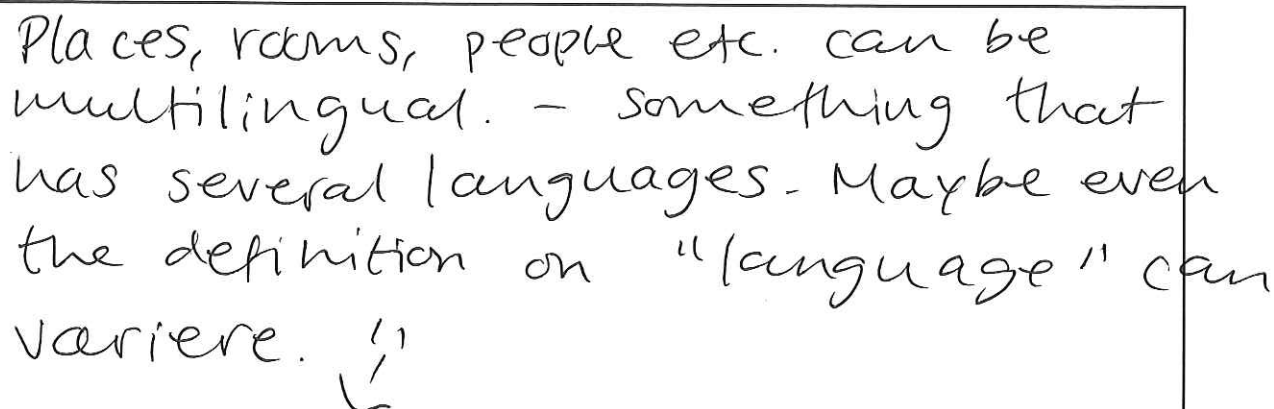 Places, rooms, people etc. can be
multilingual. - something that
has several languages. Maybe even
the definition on "language" can
variere.